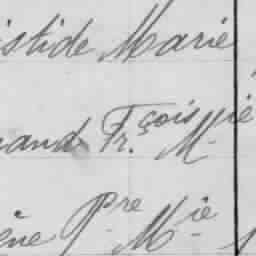 istide Marie
and Fr.çois Mie
ène Pre Mie